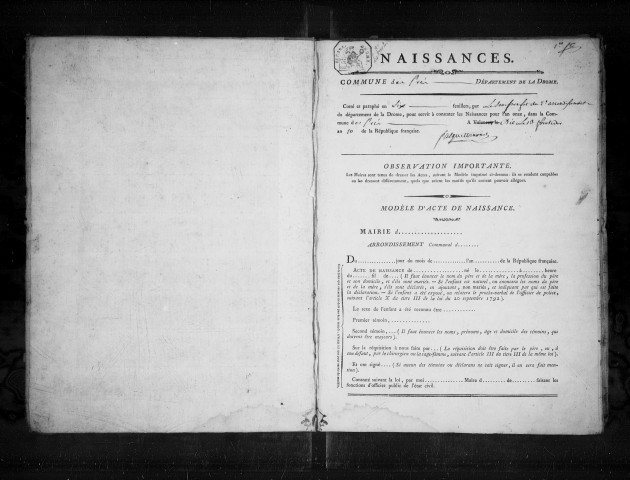 1er fet
NAISSANCES.
COMMUNE des Prés DÉPARTEMENT DE LA DROME.
Coté et paraphé en Six feuillets, par
du département de la Drome, pour servir à constater les Naissances pour l'an onze, dans la Com-
mune des Prés A Die
an 10 de la République française.
OBSERVATION IMPORTANTE.
Les Maires sont tenus de dresser les Actes, suivant le Modèle imprimé ci-dessous: ils se rendent coupables
en les dressant différemment, quels que soient les motifs qu'ils croient pouvoir alléguer.
MODÈLE D'ACTE DE NAISSANCE.
MAIRIE d...................
ARRONDISSEMENT Communal d.......
Du.........jour du mois de...........l'an.........de la République française.
ACTE DE NAISSANCE de................né le..........à..........heure
du.......fil de.... (Il faut énoncer le nom du père et de la mère, la profession du père
et son domicile, et s'ils sont mariés. — Si l'enfant est naturel, on énoncera les noms du père
et de la mère, s'ils sont déclarés, en ajoutant, non mariés, et indiquant par qui est faite
la déclaration. — Si l'enfant a été exposé, on relatera le procès-verbal de l'officier de police,
suivant l'article X du titre III de la loi du 20 septembre 1792).
Le sexe de l'enfant a été reconnu être..........
Premier témoin,...............
Second témoin,.... (Il faut énoncer les noms, prénoms, âge et domicile des témoins, qui
doivent être majeurs).
Sur la réquisition à nous faite par....( La réquisition doit être faite par le père, ou, à
son défaut, par le chirurgien ou la sage-femme, suivant l'article III du titre III de la même loi).
Et ont signé....( Si aucun des témoins ou déclarans ne sait signer, il en sera fait men-
tion).
Constaté suivant la loi, par moi............Maire d.........de..........faisant les
fonctions d'officier public de l'état civil.